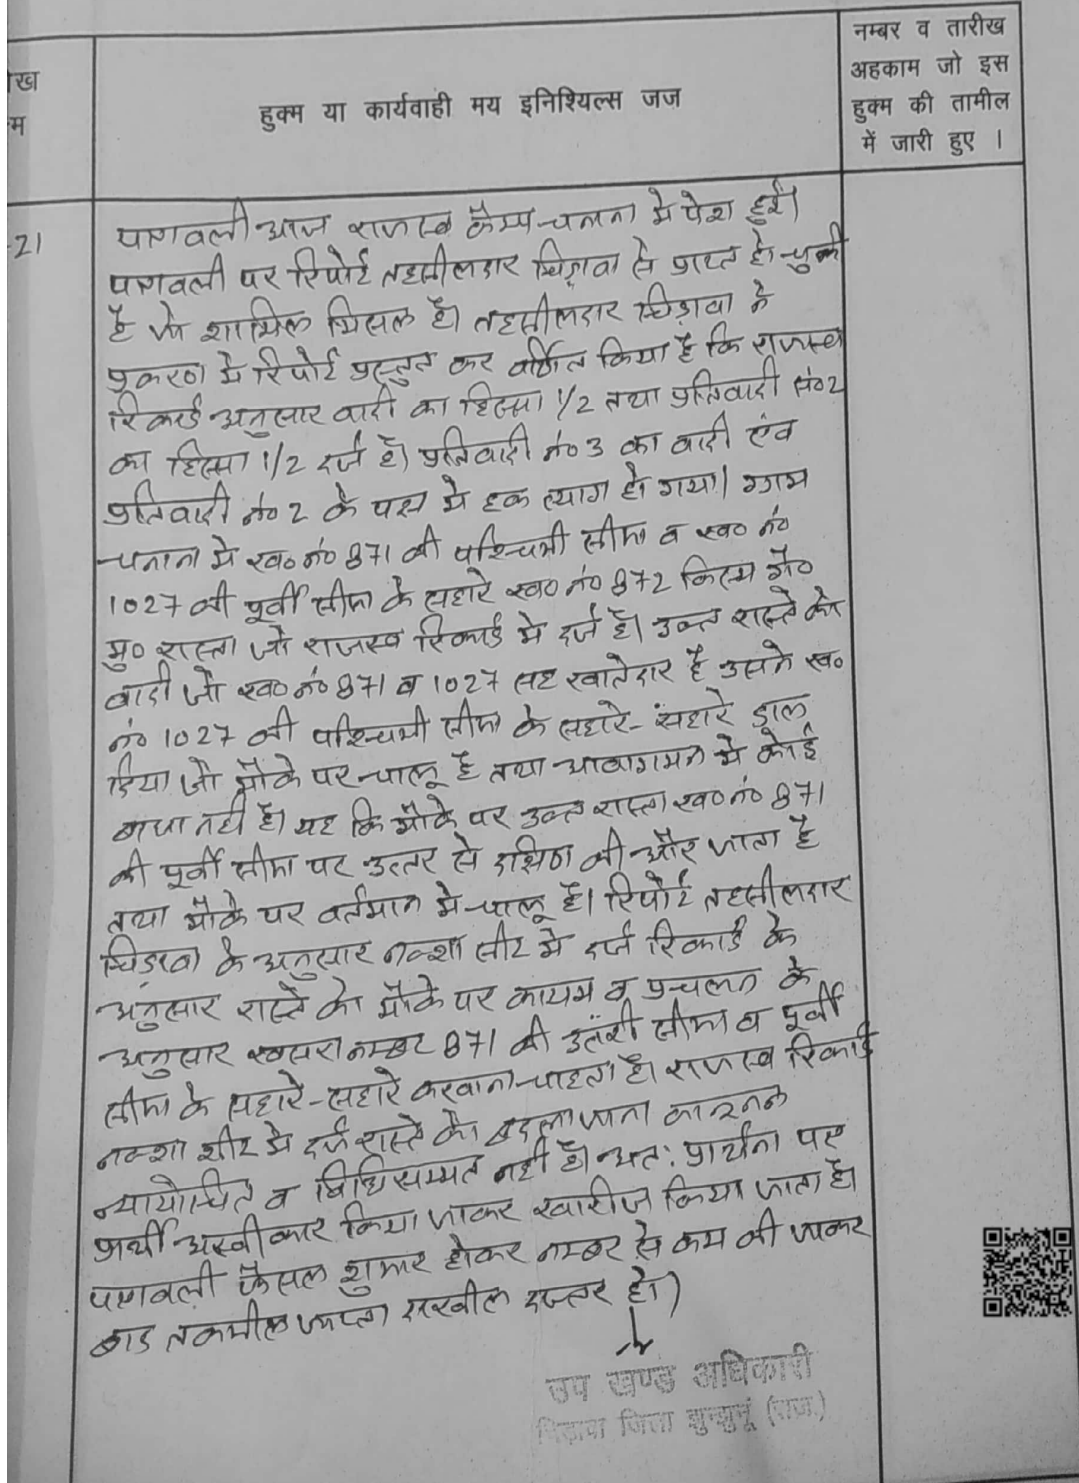 नम्बर व तारीख
अहकाम जो इस
हुक्म की तामील
में जारी हुए ।
हुक्म या कार्यवाही मय इनिश्यिल्स जज
ख
म
-21
पत्रावली आज राजस्व कैम्प चनाना मे पेश हुई।
पत्रावली पर रिपोर्ट तहसीलदार चिड़ावा से प्राप्त हो चुकी
है जो शामिल मिसल है। तहसीलदार चिड़ावा ने
प्रकरण मे रिपोर्ट प्रस्तुत कर वर्णित किया है कि राजस्व
रिकार्ड अनुसार वादी का हिस्सा 1/2 तथा प्रतिवादी सं० 2
का हिस्सा 1/2 दर्ज है। प्रतिवादी नं० 3 का वादी एंव
प्रतिवादी नं० 2 के पक्ष मे हक त्याग हो गया। ग्राम
चनाना मे ख० नं० 871 की पश्चिमी सीमा व ख० नं०
1027 की पूर्वी सीमा के सहारे ख० नं० 872 किस्म गै०
मु० रास्ता जो राजस्व रिकार्ड मे दर्ज है। उक्त रास्ते को
वादी जो ख० नं० 871 व 1027 सह खातेदार है उसने ख०
नं० 1027 की पश्चिमी सीमा के सहारे-सहारे डाल
दिया जो मौके पर चालू है तथा आवागमन मे कोई
बाधा नही है। यह कि मौके पर उक्त रास्ता ख० नं० 871
की पूर्वी सीमा पर उत्तर से दक्षिण की और जाता है
तथा मौके पर वर्तमान मे चालू है। रिपोर्ट तहसीलदार
चिड़ावा के अनुसार नक्शा सीट मे दर्ज रिकार्ड के
अनुसार रास्ते को मौके पर कायम व प्रचलन के
अनुसार खसरा नम्बर 871 की उतरी सीमा व पूर्वी
सीमा के सहारे-सहारे करवाना चाहता है। राजस्व रिकार्ड
नक्शा शीट मे दर्ज रास्ते को बदला जाना कानूनन
न्यायोचित व विधिसम्मत नही है। अत: प्रार्थना पत्र
प्रार्थी अस्वीकार किया जाकर खारीज किया जाता है।
पत्रावली फैसल शुमार होकर नम्बर से कम की जाकर
बाद तकमील जाप्ता दाखील दफ्तर हो।
उप खण्ड अधिकारी
चिड़ावा जिला झुन्झुनूं (राज.)